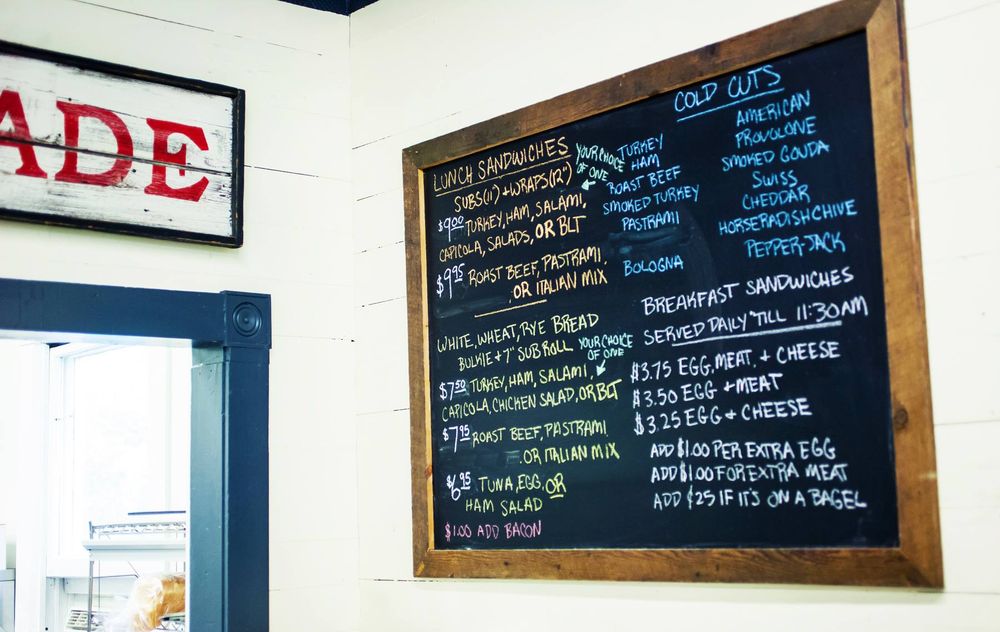 ADE
LUNCH SANDWICHES
SUBS(11") + WRAPS(12")
YOUR CHOICE
OF ONE
$9.00 TURKEY, HAM, SALAMI,
CAPICOLA, SALADS, OR BLT
$9.95 ROAST BEEF, PASTRAMI,
OR ITALIAN MIX
WHITE, WHEAT, RYE BREAD
BULKIE + 7" SUB ROLL
YOUR CHOICE
OF ONE
$7.50 TURKEY, HAM, SALAMI,
CAPICOLA, CHICKEN SALAD, OR BLT
$7.95 ROAST BEEF, PASTRAMI
OR ITALIAN MIX
$6.95 TUNA, EGG, OR
HAM SALAD
$1.00 ADD BACON
COLD CUTS
TURKEY
HAM
ROAST BEEF
SMOKED TURKEY
PASTRAMI
BOLOGNA
AMERICAN
PROVOLONE
SMOKED GOUDA
SWISS
CHEDDAR
HORSERADISH CHIVE
PEPPER-JACK
BREAKFAST SANDWICHES
SERVED DAILY 'TILL 11:30AM
$3.75 EGG, MEAT, + CHEESE
$3.50 EGG + MEAT
$3.25 EGG + CHEESE
ADD $1.00 PER EXTRA EGG
ADD $1.00 FOR EXTRA MEAT
ADD $.25 IF IT'S ON A BAGEL